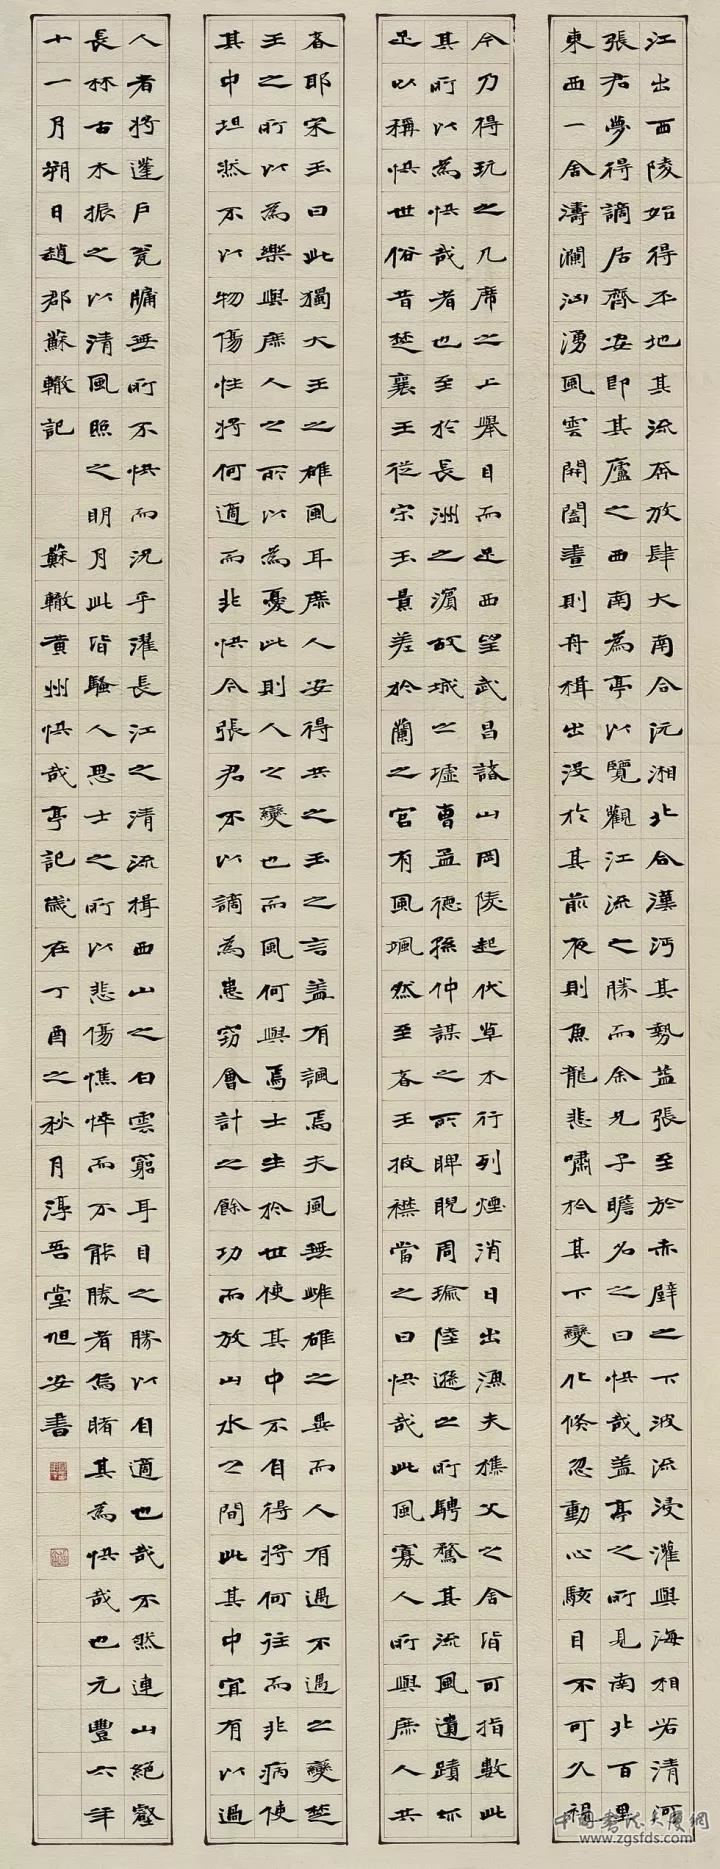 江出西陵始得平地其流奔放肆大南合沅湘北合漢沔其勢益張至於赤壁之下波流浸灌與海相若清河
張君夢得謫居齊安即其廬之西南為亭以覽觀江流之勝而余兄子瞻名之曰快哉蓋亭之所見南北百里
東西一舍濤瀾洶湧風雲開闔晝則舟楫出沒於其前夜則魚龍悲嘯於其下變化倏忽動心駭目不可久視
今乃得玩之几席之上舉目而足西望武昌諸山岡陵起伏草木行列煙消日出漁夫樵父之舍皆可指數此
其所以為快哉者也至於長洲之濱故城之墟曹孟德孫仲謀之所睥睨周瑜陸遜之所騁騖其流風遺蹟亦
足以稱快世俗昔楚襄王從宋玉景差於蘭之宮有風颯然至者王披襟當之曰快哉此風寡人所與庶人共
者耶宋玉曰此獨大王之雄風耳庶人安得共之玉之言蓋有諷焉夫風無雌雄之異而人有遇不遇之變楚
王之所以為樂與庶人之所以為憂此則人之變也而風何與焉士生於世使其中不自得將何往而非病使
其中坦然不以物傷性將何適而非快今張君不以謫為患竊會計之餘功而放山水之間此其中宜有以過
人者將蓬戶甕牖無所不快而況乎濯長江之清流揖西山之白雲窮耳目之勝以自適也哉不然連山絕壑
長林古木振之以清風照之明月此皆騷人思士之所以悲傷憔悴而不能勝者烏睹其為快哉也元豐六年
十一月朔日趙郡蘇轍記 蘇轍黃州快哉亭記歲在丁酉之秋月淳吾堂旭安書
中国书法大厦網
www.zgsfds.com